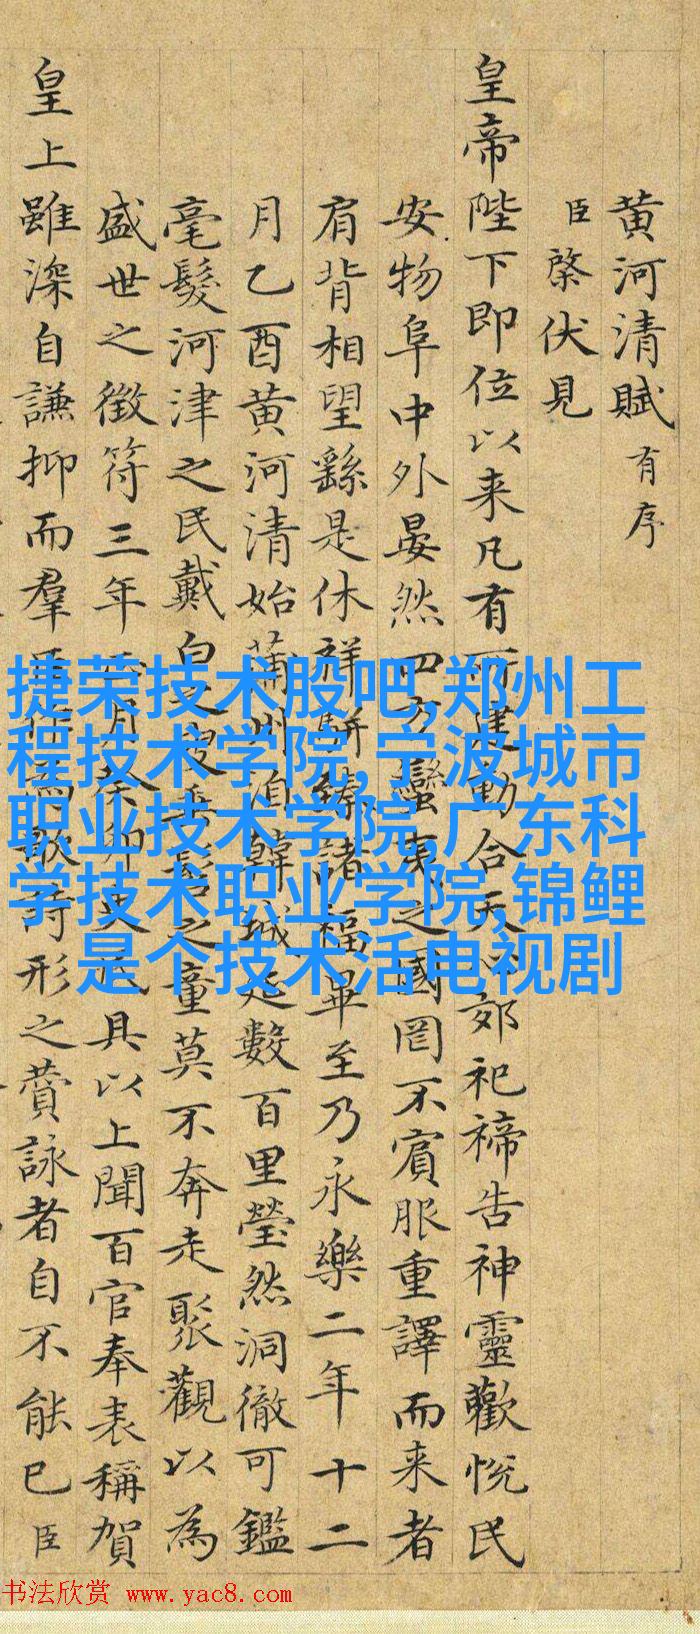 黄河清賦 有序
臣棨伏見
皇帝陛下即位以来凡有所動合天心郊祀禘告神靈歡悦民
安物阜中外晏然四方蠻夷之國罔不賓服重譯而来者
肩背相望繇是休祥駢臻諸福畢至乃永樂二年十二
月乙酉黄河清始蒲州洎韓城延數百里瑩然洞徹可鑑
毫髮河津之民戴白之叟垂髫之童莫不奔走聚觀以為
盛世之徵符三年正月癸卯民具以上聞百官奉表稱賀
皇上雖深自謙抑而羣臣作為歌詩形之賛詠者自不能已臣
捷荣技术股吧,郑州工
程技术学院,宁波城市
职业技术学院,广东科
学技术职业学院,锦鲤
是个技术活电视剧
书法欣赏 www.yac8.com